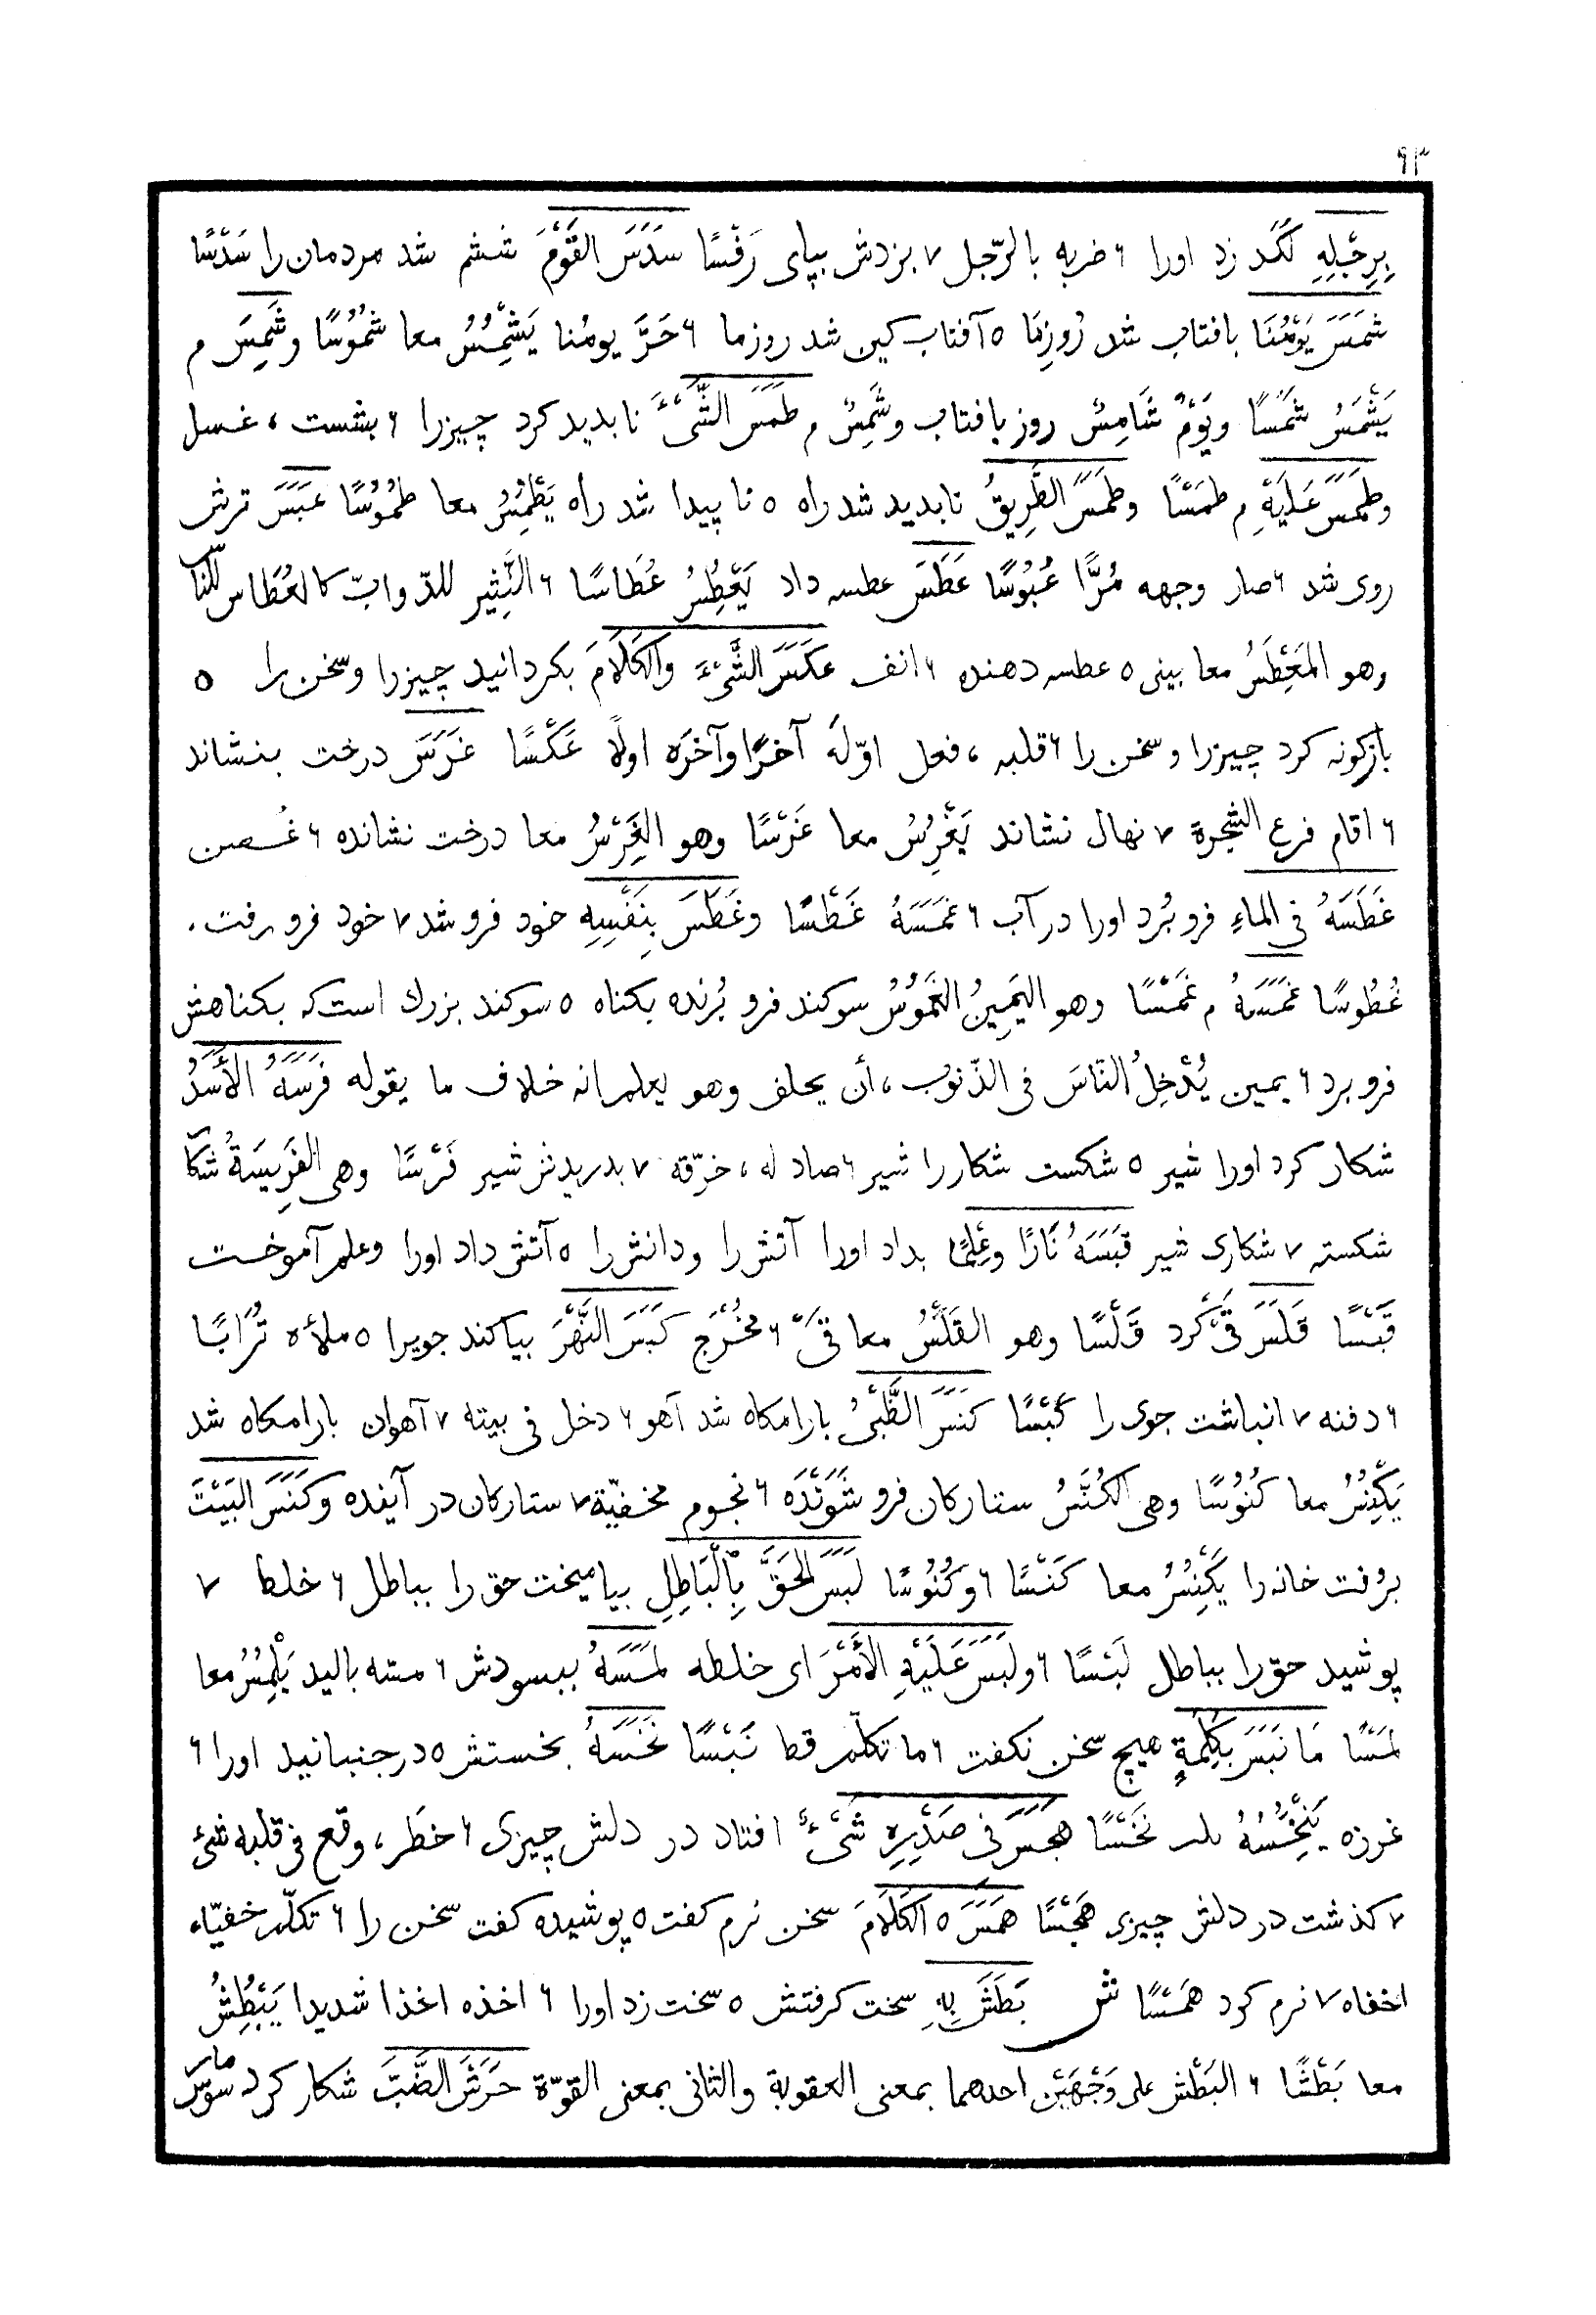 ٩٣
بِرِجْلِهِ لَكَد زد اورا ۶ ضربه بالرّجل ٧ بزدش بپای رَفْسًا سَدَسَ القَوْمَ ششم شد مردمان را سَدْسًا
شَمَسَ يَوْمُنَا بافتاب شد رُوزِمَا ٥ آفتاب كین شد روزما ۶ حَرَّ یومُنا يَشْمُِسُ معا شُمُوسًا وشَمِسَ م
يَشْمَسُ شَمَسًا ويَوْمٌ شَامِسٌ روز بافتاب وشَمِسٌ م طَمَسَ الشَّىْءَ نابدید كرد چیزرا ۶ بشست ، غسل
وطَمَسَ عَلَيْهِ م طَمْسًا وطَمَسَ الطَّرِيقُ نابدید شد راه ٥ ناپیدا شد راه يَطْمُِسُ معا طُمُوسًا عَبَسَ ترش
روی شد ۶ صار وجهه مُرًّا عُبُوسًا عَطَسَ عطسه داد يَعْطُِسُ عُطَاسًا ۶ النَّثِير للدّوابّ كالعُطَاس للنّاس
وهو المَعْطَِسُ معا بینی ٥ عطسه دهنده ۶ انف عَكَسَ الشَّىْءَ والكَلَامَ بكردانید چیزرا وسخن را ٥
بازكونه كرد چیزرا وسخن را ۶ قلبه ، فعل اوّلَه آخرًا وآخرَه اولًا عَكْسًا غَرَسَ درخت بنشاند
۶ اقام فرع الشجرة ٧ نهال نشاند يَغْرُِسُ معا غَرْسًا وهو الغَِرْسُ معا درخت نشانده ۶ غُصن
غَطَسَهُ فى الماءِ فرو بُرد اورا در آب ۶ غَمَسَهُ غَطْسًا وغَطَسَ بِنَفْسِهِ خود فرو شد ٧ خود فرو رفت .
غُطُوسًا غَمَسَهُ م غَمْسًا وهو اليَمِينُ الغَمُوسُ سوكند فرو بُرنده بكناه ٥ سوكند بزرك است كه بكناهش
فرو برد ۶ یمین يُدْخِلُ النّاسَ فى الذّنوب ، أن یحلف وهو یعلم انه خلاف ما یقوله فَرَسَهُ الأَسَدُ
شكار كرد اورا شیر ٥ شكست شكار را شیر ۶ صاد له ، خرّقه ٧ بدریدش شیر فَرْسًا وهى الفَرِيسَةُ شكار
شكسته ٧ شكاری شیر قَبَسَهُ نَارًا وعِلْمًا بداد اورا آتش را ودانش را ٥ آتش داد اورا وعلم آموخت
قَبْسًا قَلَسَ قَىْ كرد قَلْسًا وهو القَلَْسُ معا قَىْ ۶ مُخْرَج كَبَسَ النَّهْرَ بیاكند جویرا ٥ ملأه تُرَابًا
۶ دفنه ٧ انباشت جوی را كَبْسًا كَنَسَ الظَّبْىُ بارامكاه شد آهو ۶ دخل فى بیته ٧ آهوان بارامكاه شد
يَكْنُِسُ معا كُنُوسًا وهى الكُنَّسُ ستاركان فرو شَوَنْدَه ۶ نجوم مخفیّة ٧ ستاركان در آینده وكَنَسَ البَيْتَ
برُفت خانه را يَكْنُِسُ معا كَنْسًا ۶ وكُنُوسًا لَبَسَ الحَقَّ بِالْبَاطِلِ بیامیخت حق را بباطل ۶ خلط ٧
پوشید حق را بباطل لَبْسًا ۶ ولَبَسَ عَلَيْهِ الأَمْرَ ای خلطه لَمَسَهُ ببسودش ۶ مسّه بالید يَلْمُِسُ معا
لَمْسًا مَا نَبَسَ بِكَلِمَةٍ هیچ سخن نكفت ۶ ما تكلّم قط نَبْسًا نَخَسَهُ بخستش ٥ درجنبانید اورا ۶
غرزه يَنْخَُِسُهُ نَخْسًا هَجَسَ فى صَدْرِهِ شَىْءٌ افتاد در دلش چیزی ۶ خطَر ، وقع فى قلبه شىء
٧ كذشت در دلش چیزی هَجْسًا هَمَسَ ٥ الكَلَامَ سخن نرم كفت ٥ پوشیده كفت سخن را ۶ تكلّم خفیّاء
اخفاه ٧ نرم كرد هَمْسًا ش بَطَشَ بِهِ سخت كرفتش ٥ سخت زد اورا ۶ اخذه اخذا شدیدا يَبْطُِشُ
معا بَطْشًا ۶ البَطْش على وَجْهَيْن احدهما بمعنى العقوبة والثانى بمعنى القوّة حَرَشَ الضَّبَّ شكار كرد سوسمار